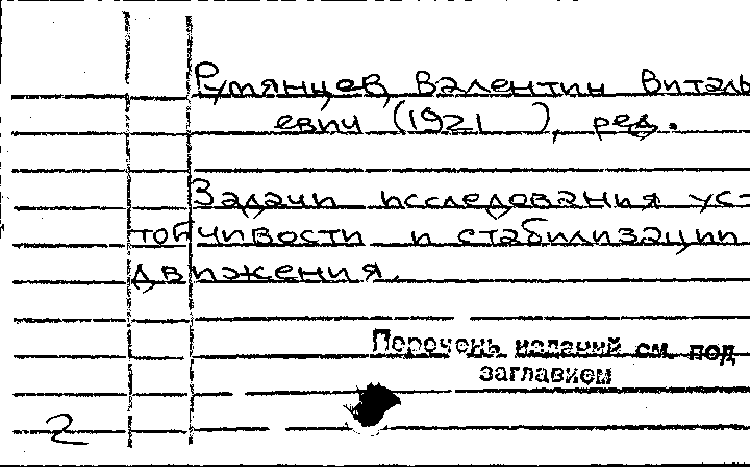 Румянцев, Валентин Виталь
евич (1921 ), ред.
Задачи исследования ус-
тойчивости и стабилизации
движения.
Перечень изданий см. под
заглавием
2